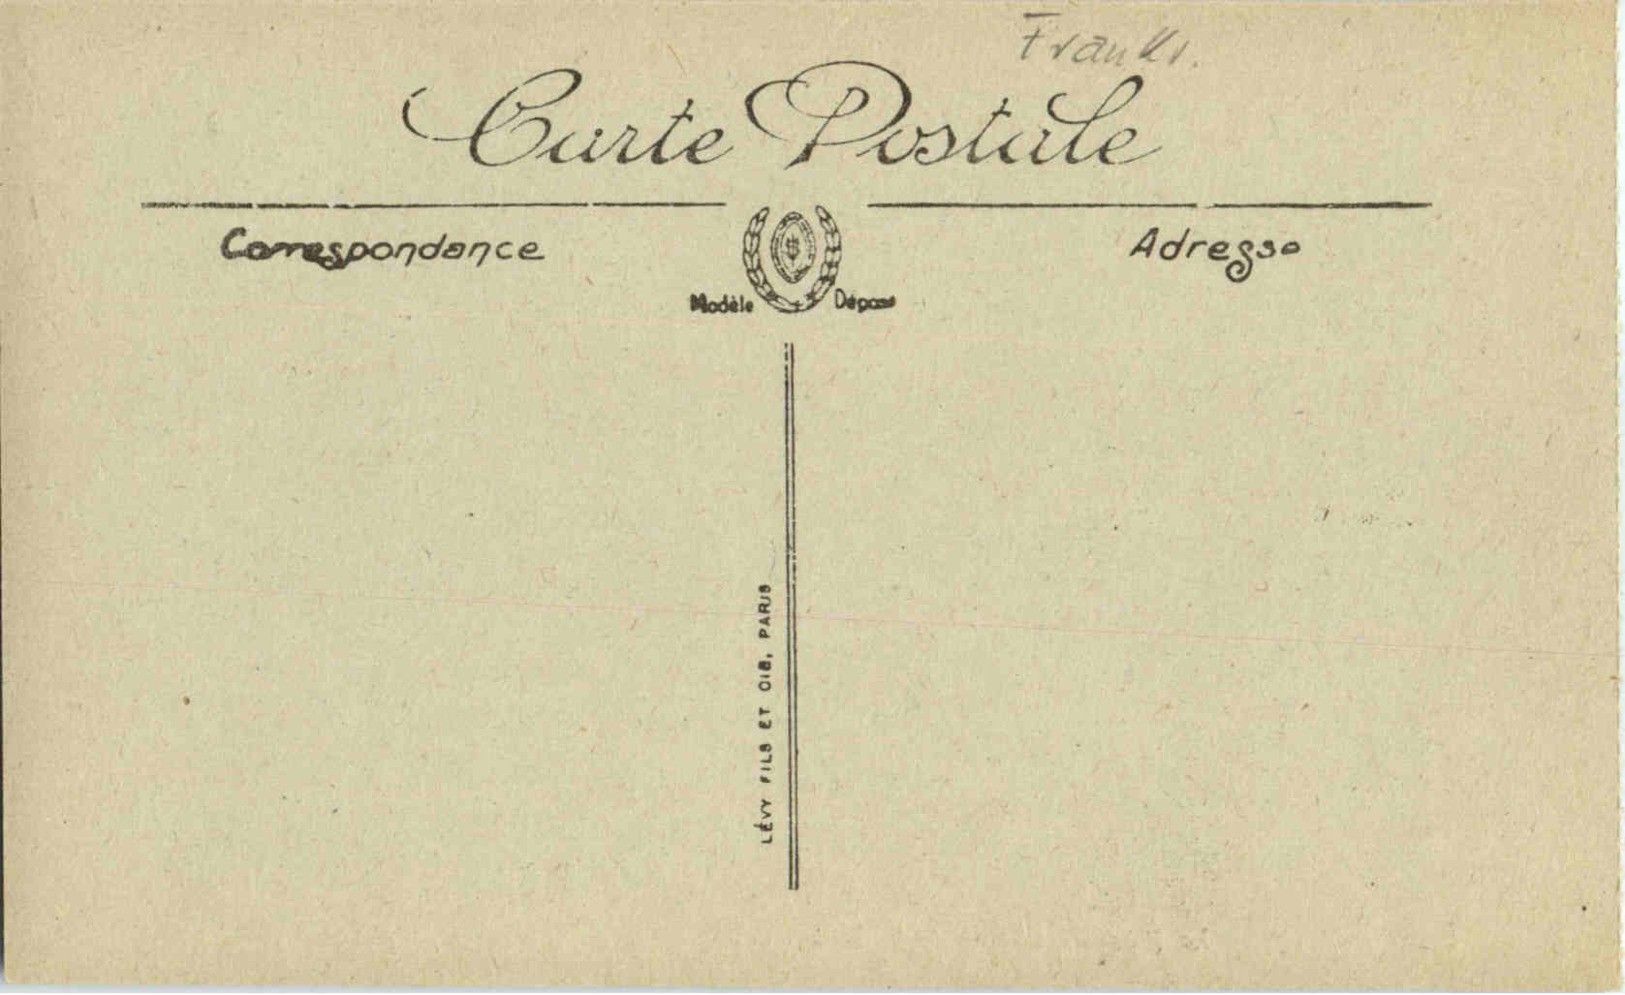 Frankr.
Carte Postale
Correspondance
Adresse
Modèle Déposé
LÉVY FILS ET CIE, PARIS